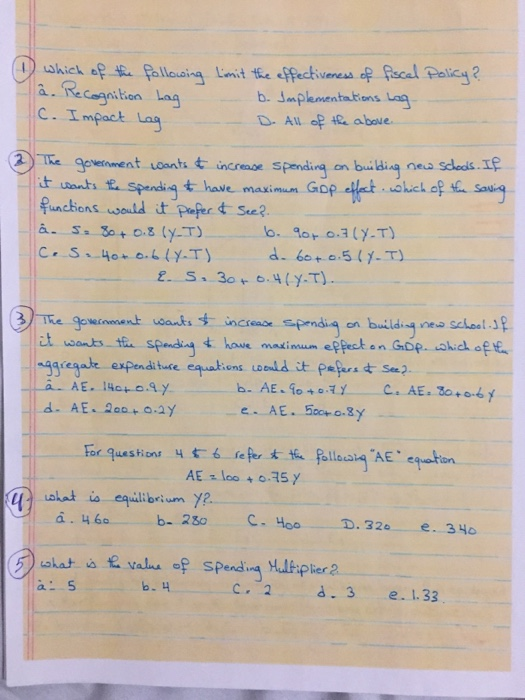 ① Which of the following limit the effectiveness of fiscal Policy?
a. Recognition Lag b. Implementations Lag
C. Impact Lag D. All of the above.
② The government wants to increase spending on building new schools. If
it wants the spending to have maximum GDP effect. which of the saving
functions would it prefer to see?
a. S = 80 + 0.8 (Y-T) b. 90 + 0.7 (Y-T)
C. S = 40 + 0.6 (Y-T) d. 60 + 0.5 (Y-T)
E. S = 30 + 0.4 (Y-T).
③ The government wants to increase spending on building new school. If
it wants the spending to have maximum effect on GDP. which of the
aggregate expenditure equations would it prefers to see?
a. AE = 140 + 0.9Y b. AE = 90 + 0.7Y C. AE = 80 + 0.6Y
d. AE = 200 + 0.2Y e. AE = 500 + 0.8Y
For questions 4 to 6 refer to the following "AE" equation
AE = 100 + 0.75Y
④ what is equilibrium Y?
a. 460 b- 280 C. 400 D. 320 e. 340
⑤ what is the value of Spending Multiplier?
a: 5 b. 4 C. 2 d. 3 e. 1.33